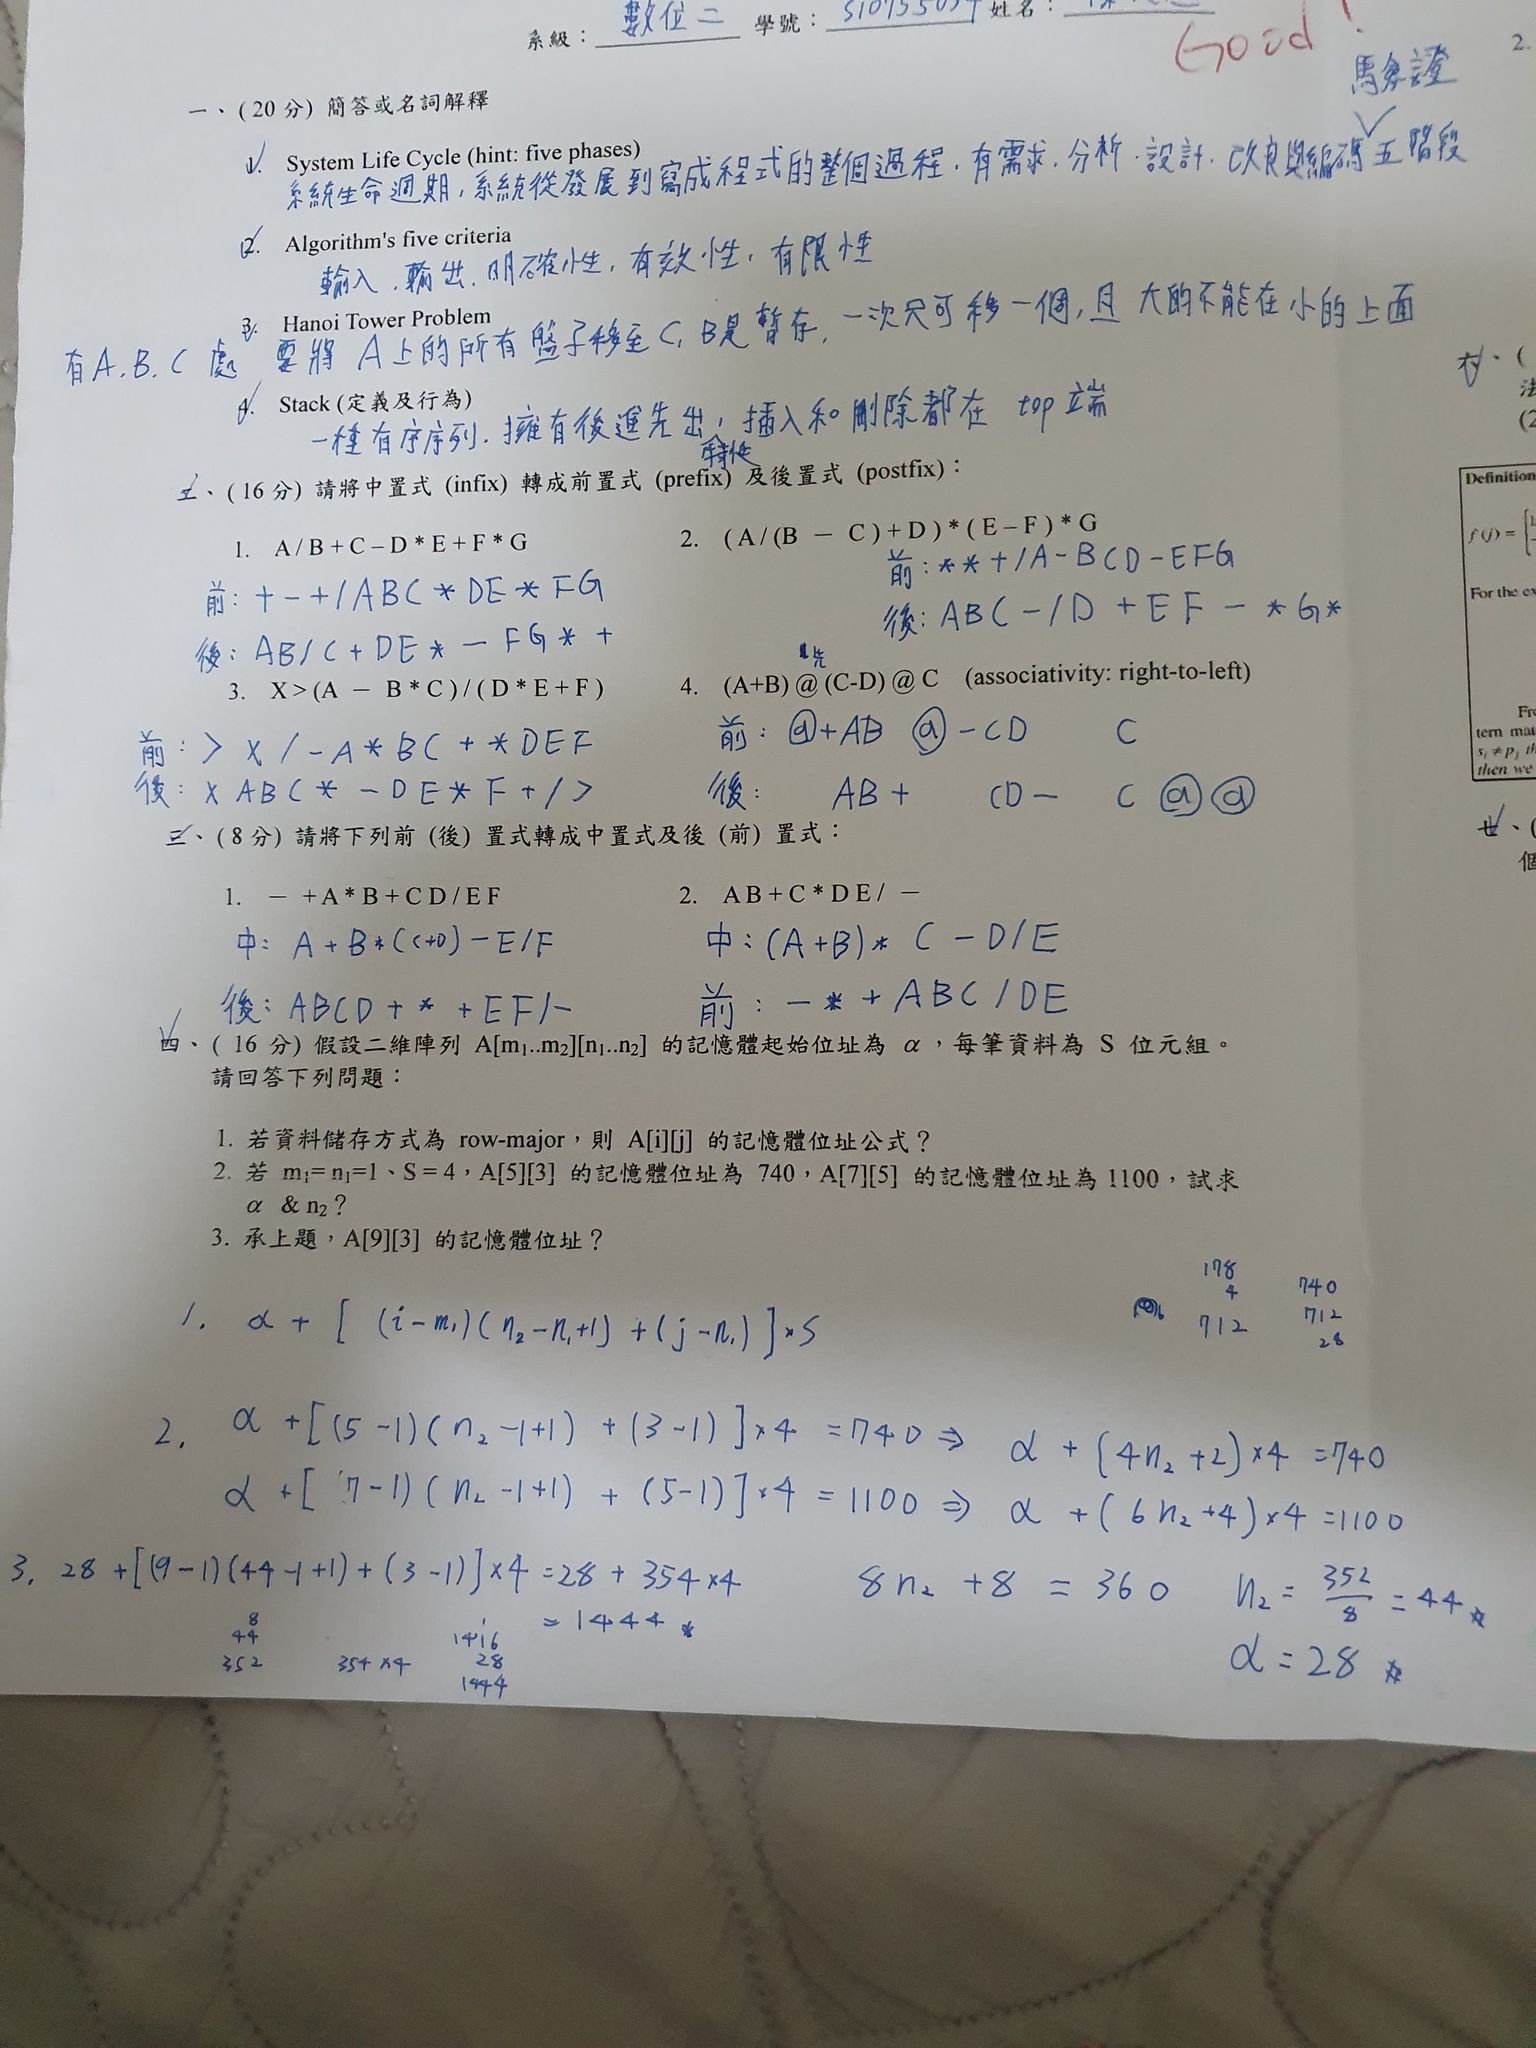 系級： 數位二 學號： S10755034 姓名：
Good!
一、(20 分) 簡答或名詞解釋
驗證
1. System Life Cycle (hint: five phases)
系統生命週期，系統從發展到寫成程式的整個過程．有需求．分析．設計．改良與編碼五階段
2. Algorithm's five criteria
輸入．輸出．明確性．有效性．有限性
3. Hanoi Tower Problem
有A.B.C 處 要將 A上的所有盤子移至C, B是暫存, 一次只可移一個,且 大的不能在小的上面
4. Stack (定義及行為)
一種有序序列．擁有後進先出，插入和刪除都在 top端
特性
二、(16 分) 請將中置式 (infix) 轉成前置式 (prefix) 及後置式 (postfix)：
1. A / B + C – D * E + F * G
2. ( A / (B － C ) + D ) * ( E – F ) * G
前: + - + / A B C * D E * F G
前: * * + / A - B C D - E F G
後: A B / C + D E * - F G * +
後: A B C - / D + E F - * G *
先
3. X > (A － B * C ) / ( D * E + F )
4. (A+B) @ (C-D) @ C (associativity: right-to-left)
前: > X / - A * B C + * D E F
前: @ + A B @ - C D C
後: X A B C * - D E * F + / >
後: A B + C D - C @ @
三、(8 分) 請將下列前 (後) 置式轉成中置式及後 (前) 置式：
1. － + A * B + C D / E F
2. A B + C * D E / －
中: A + B * (C+D) - E / F
中: (A+B) * C - D / E
後: A B C D + * + E F / -
前: - * + A B C / D E
四、( 16 分) 假設二維陣列 A[m₁..m₂][n₁..n₂] 的記憶體起始位址為 α，每筆資料為 S 位元組。
請回答下列問題：
1. 若資料儲存方式為 row-major，則 A[i][j] 的記憶體位址公式？
2. 若 m₁= n₁=1、S = 4，A[5][3] 的記憶體位址為 740，A[7][5] 的記憶體位址為 1100，試求
α & n₂？
3. 承上題，A[9][3] 的記憶體位址？
178
4
712
740
712
28
1. α + [ (i-m₁)(n₂-n₁+1) + (j-n₁) ] × S
2. α + [(5-1)(n₂-1+1) + (3-1)] × 4 = 740 ⇒ α + (4n₂+2)×4 = 740
α + [(7-1)(n₂-1+1) + (5-1)] × 4 = 1100 ⇒ α + (6n₂+4)×4 = 1100
3. 28 + [(9-1)(44-1+1) + (3-1)] × 4 = 28 + 354×4
8n₂ + 8 = 360 n₂ = 352/8 = 44
= 1444
α = 28
8
44
352
354 ×4
1416
28
1444
2.
六、(
法
(2
Definition
f (j) =
For the ex
Fr
tern mat
sᵢ ≠ pⱼ th
then we
七、(
個